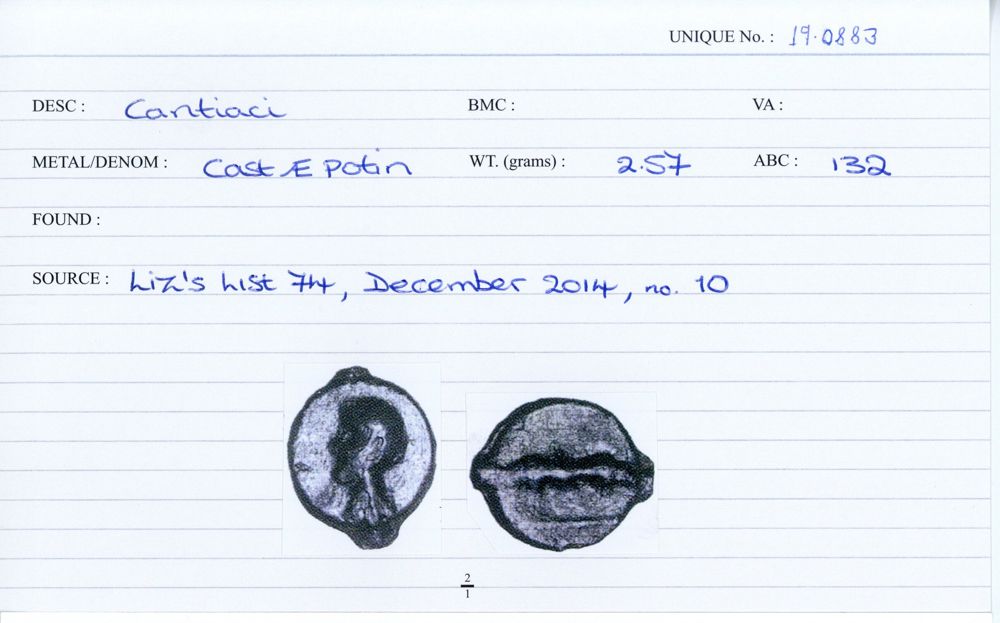 UNIQUE No. : 19.0883
DESC : Cantiaci BMC : VA :
METAL/DENOM : Cast Æ Potin WT. (grams) : 2.57 ABC : 132
FOUND :
SOURCE : Liz's List 74, December 2014, no. 10
2
1